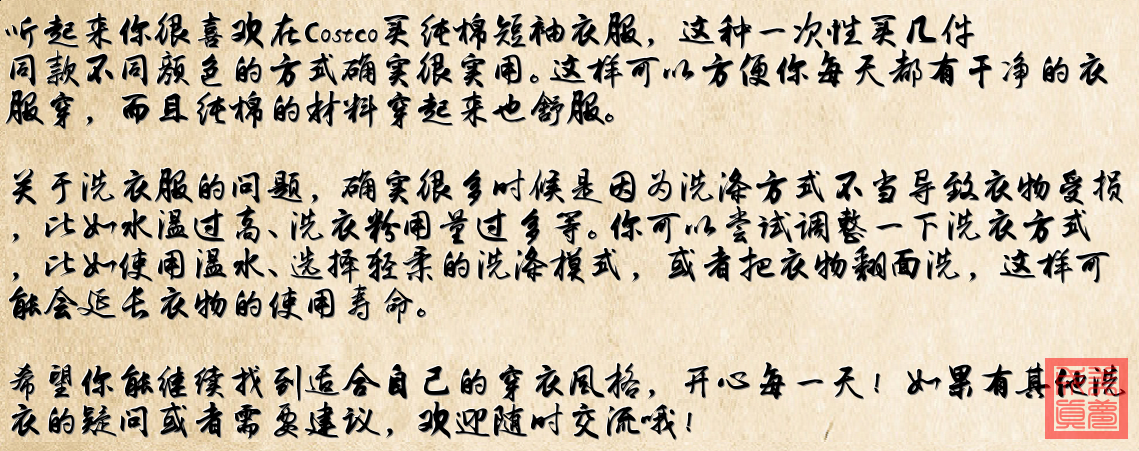 听起来你很喜欢在Costco买纯棉短袖衣服，这种一次性买几件
同款不同颜色的方式确实很实用。这样可以方便你每天都有干净的衣
服穿，而且纯棉的材料穿起来也舒服。
关于洗衣服的问题，确实很多时候是因为洗涤方式不当导致衣物受损
，比如水温过高、洗衣粉用量过多等。你可以尝试调整一下洗衣方式
，比如使用温水、选择轻柔的洗涤模式，或者把衣物翻面洗，这样可
能会延长衣物的使用寿命。
希望你能继续找到适合自己的穿衣风格，开心每一天！如果有其他洗
衣的疑问或者需要建议，欢迎随时交流哦！